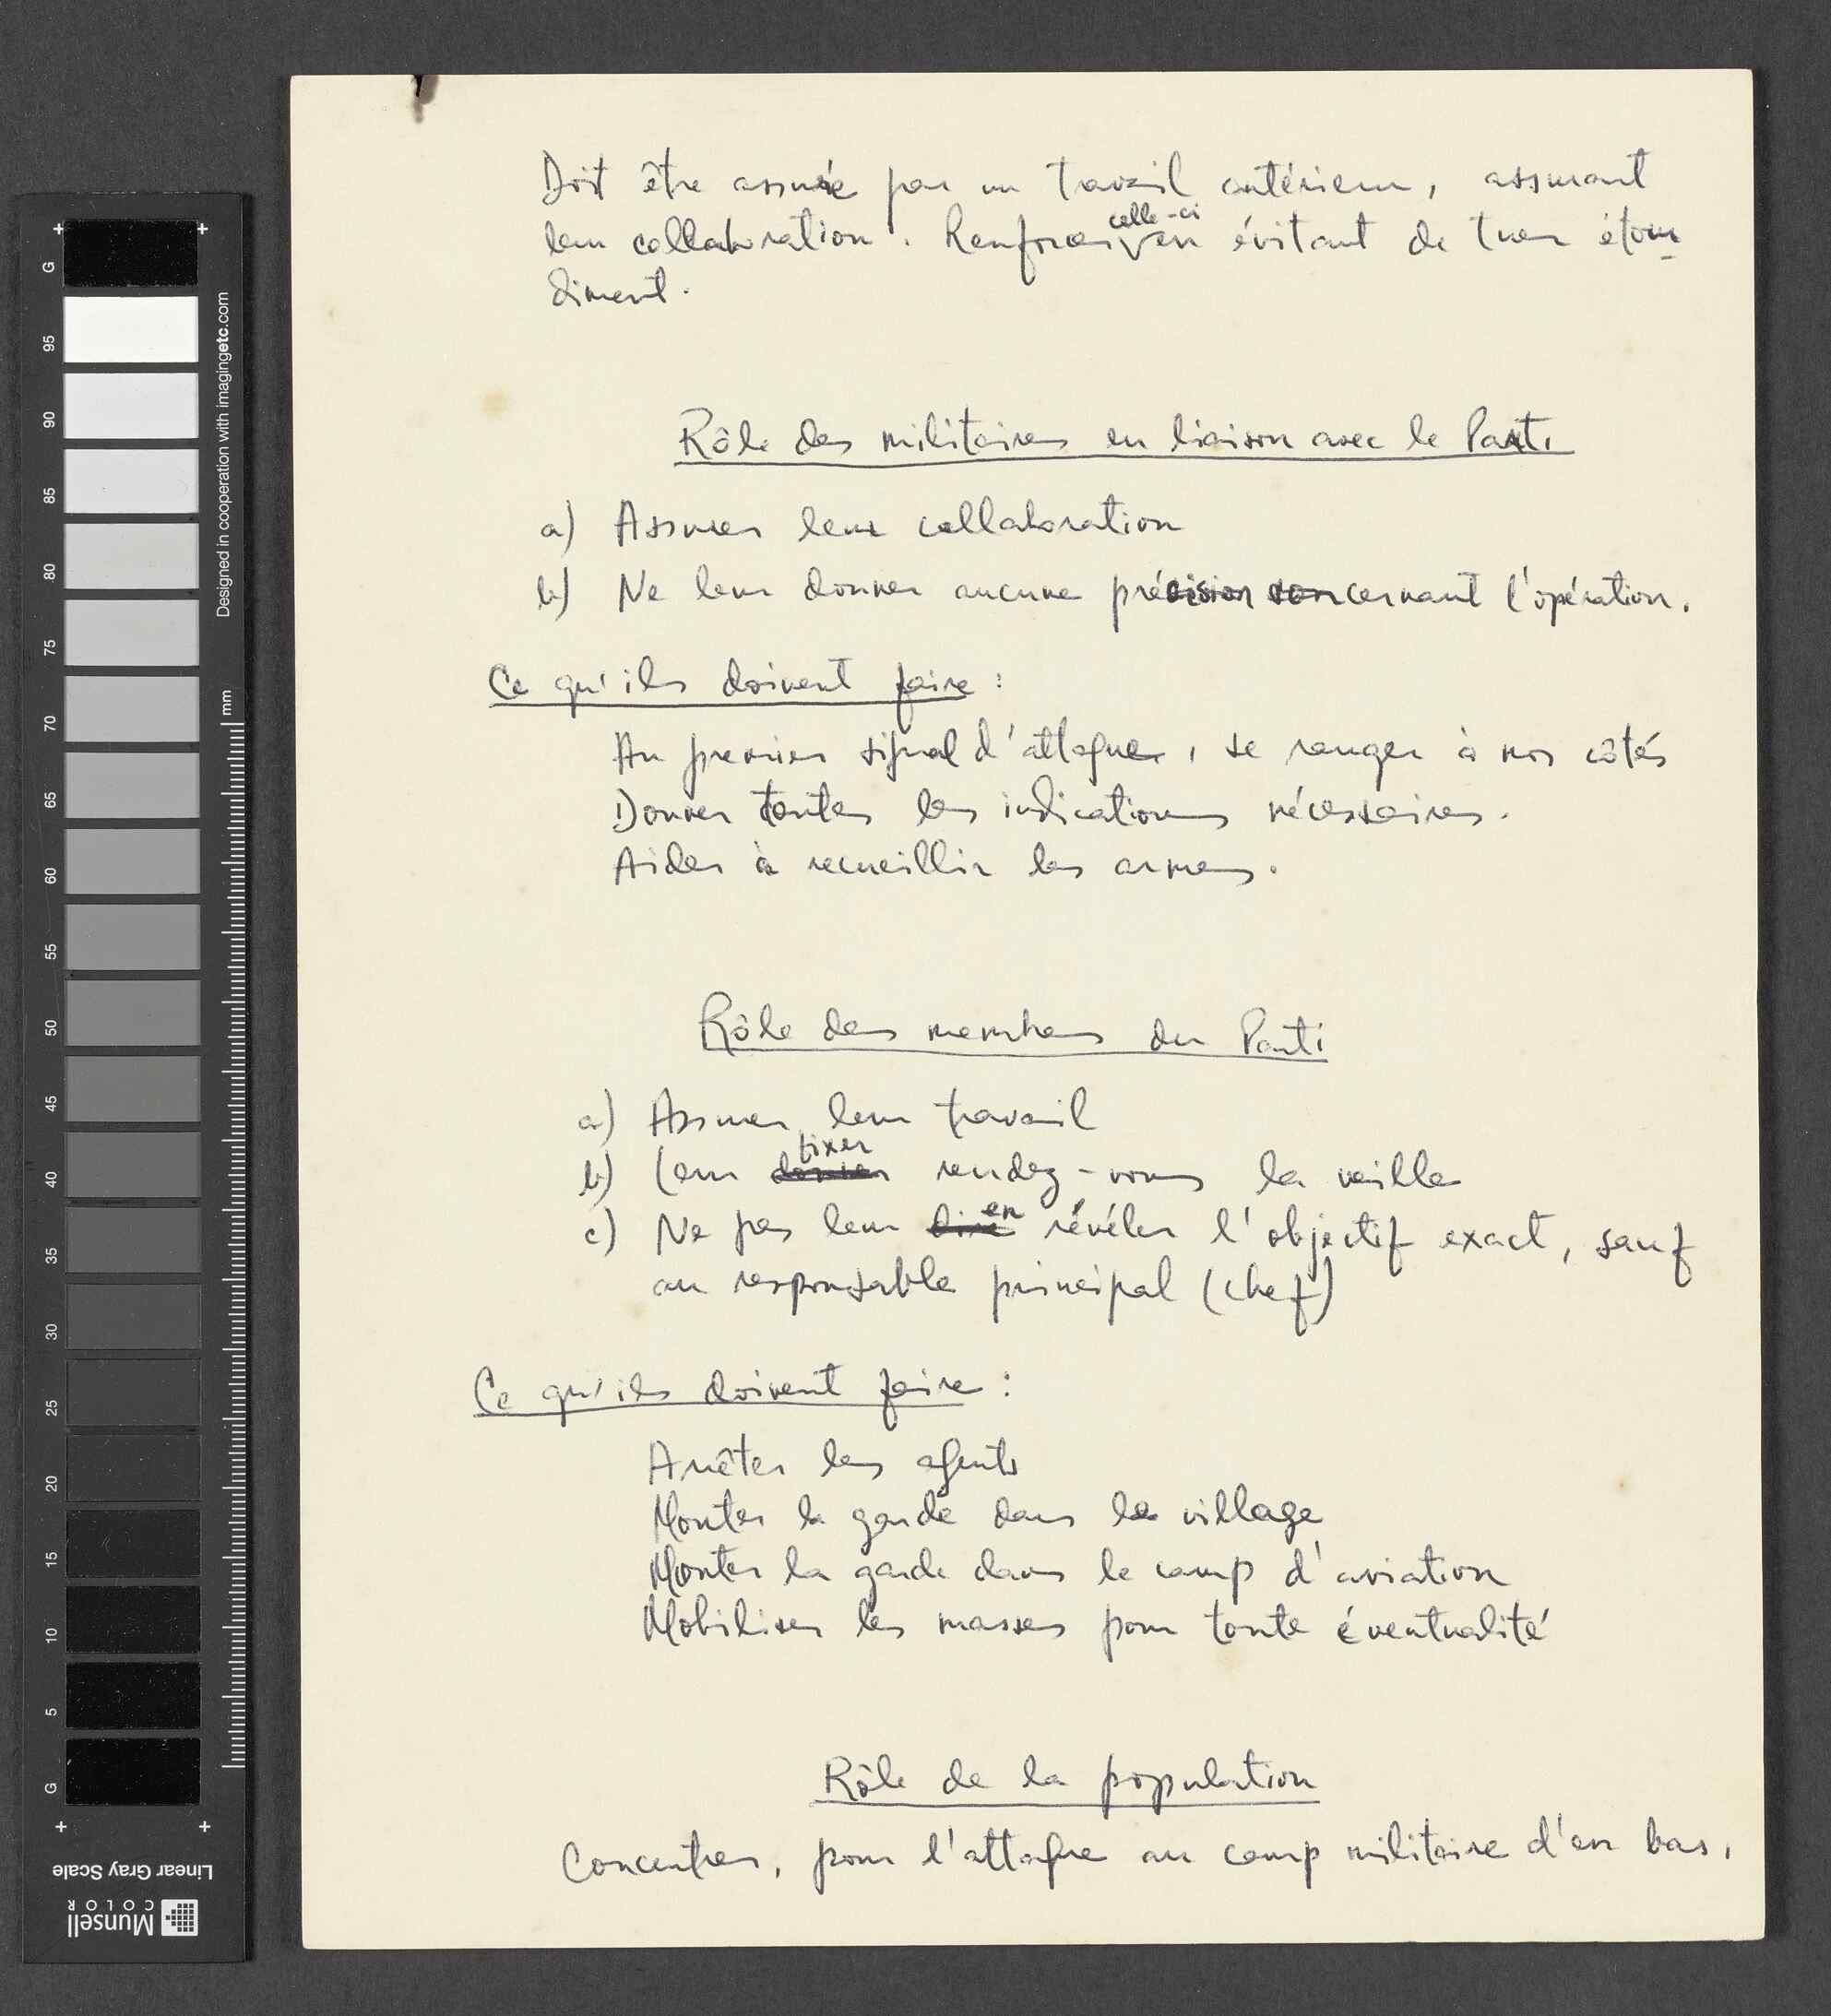 Doit être assurée par un travail antérieur, assurant
leur collaboration. Renforcer celle-ci en évitant de tuer étour-
diment.
Rôle des militaires en liaison avec le Parti
a) Assurer leur collaboration
b) Ne leur donner aucune précision concernant l'opération.
Ce qu'ils doivent faire :
Au premier signal d'attaque, se ranger à nos côtés
Donner toutes les indications nécessaires.
Aider à recueillir les armes.
Rôle des membres du Parti
a) Assurer leur travail
b) Leur donner fixer rendez-vous la veille
c) Ne pas leur dire en révéler l'objectif exact, sauf
au responsable principal (chef)
Ce qu'ils doivent faire :
Arrêter les agents
Monter la garde dans le village
Monter la garde dans le camp d'aviation
Mobiliser les masses pour toute éventualité
Rôle de la population
Concentrer, pour l'attaque au camp militaire d'en bas,
G 95 90 85 80 75 70 65 60 55 50 45 40 35 30 25 20 15 10 5 G
Designed in cooperation with imagingetc.com
mm
Linear Gray Scale
Munsell
COLOR